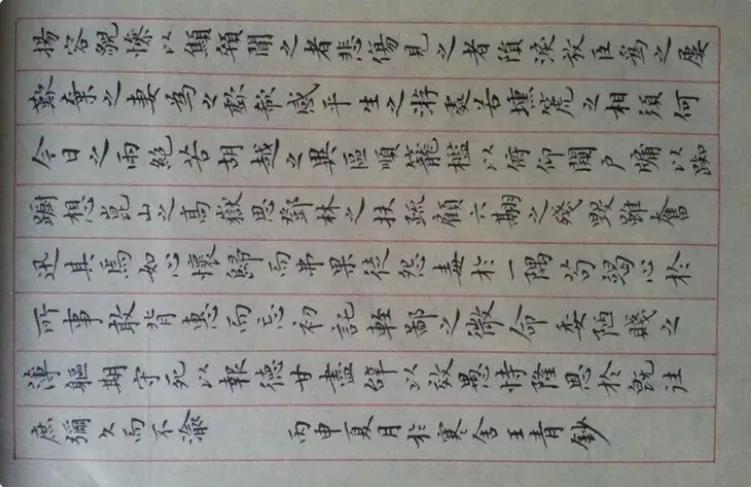 揚容貌慘以顦顇聞之者悲傷見之者隕淚放臣為之屢
歎棄之妻為之歔欷感平生之游處若壎篪之相須何
今日之雨絕若胡越之異區順籠檻以俯仰闚戶牖以踟
躕想崑山之高嶽思鄧林之扶疏顧六翮之殘毀雖奮
迅其焉如心懷歸而弗果徒怨毒於一隅苟竭心於
所事敢背惠而忘初託輕鄙之微命委陋賤之
薄軀期守死以報德甘盡辭以效愚恃隆恩於既往
庶彌久而不渝 丙申夏月於寒舍王青鈔